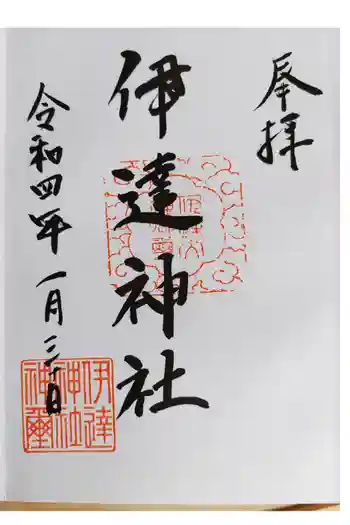 奉拝
伊達神社
令和四年一月三十日
伊達
神社
神璽